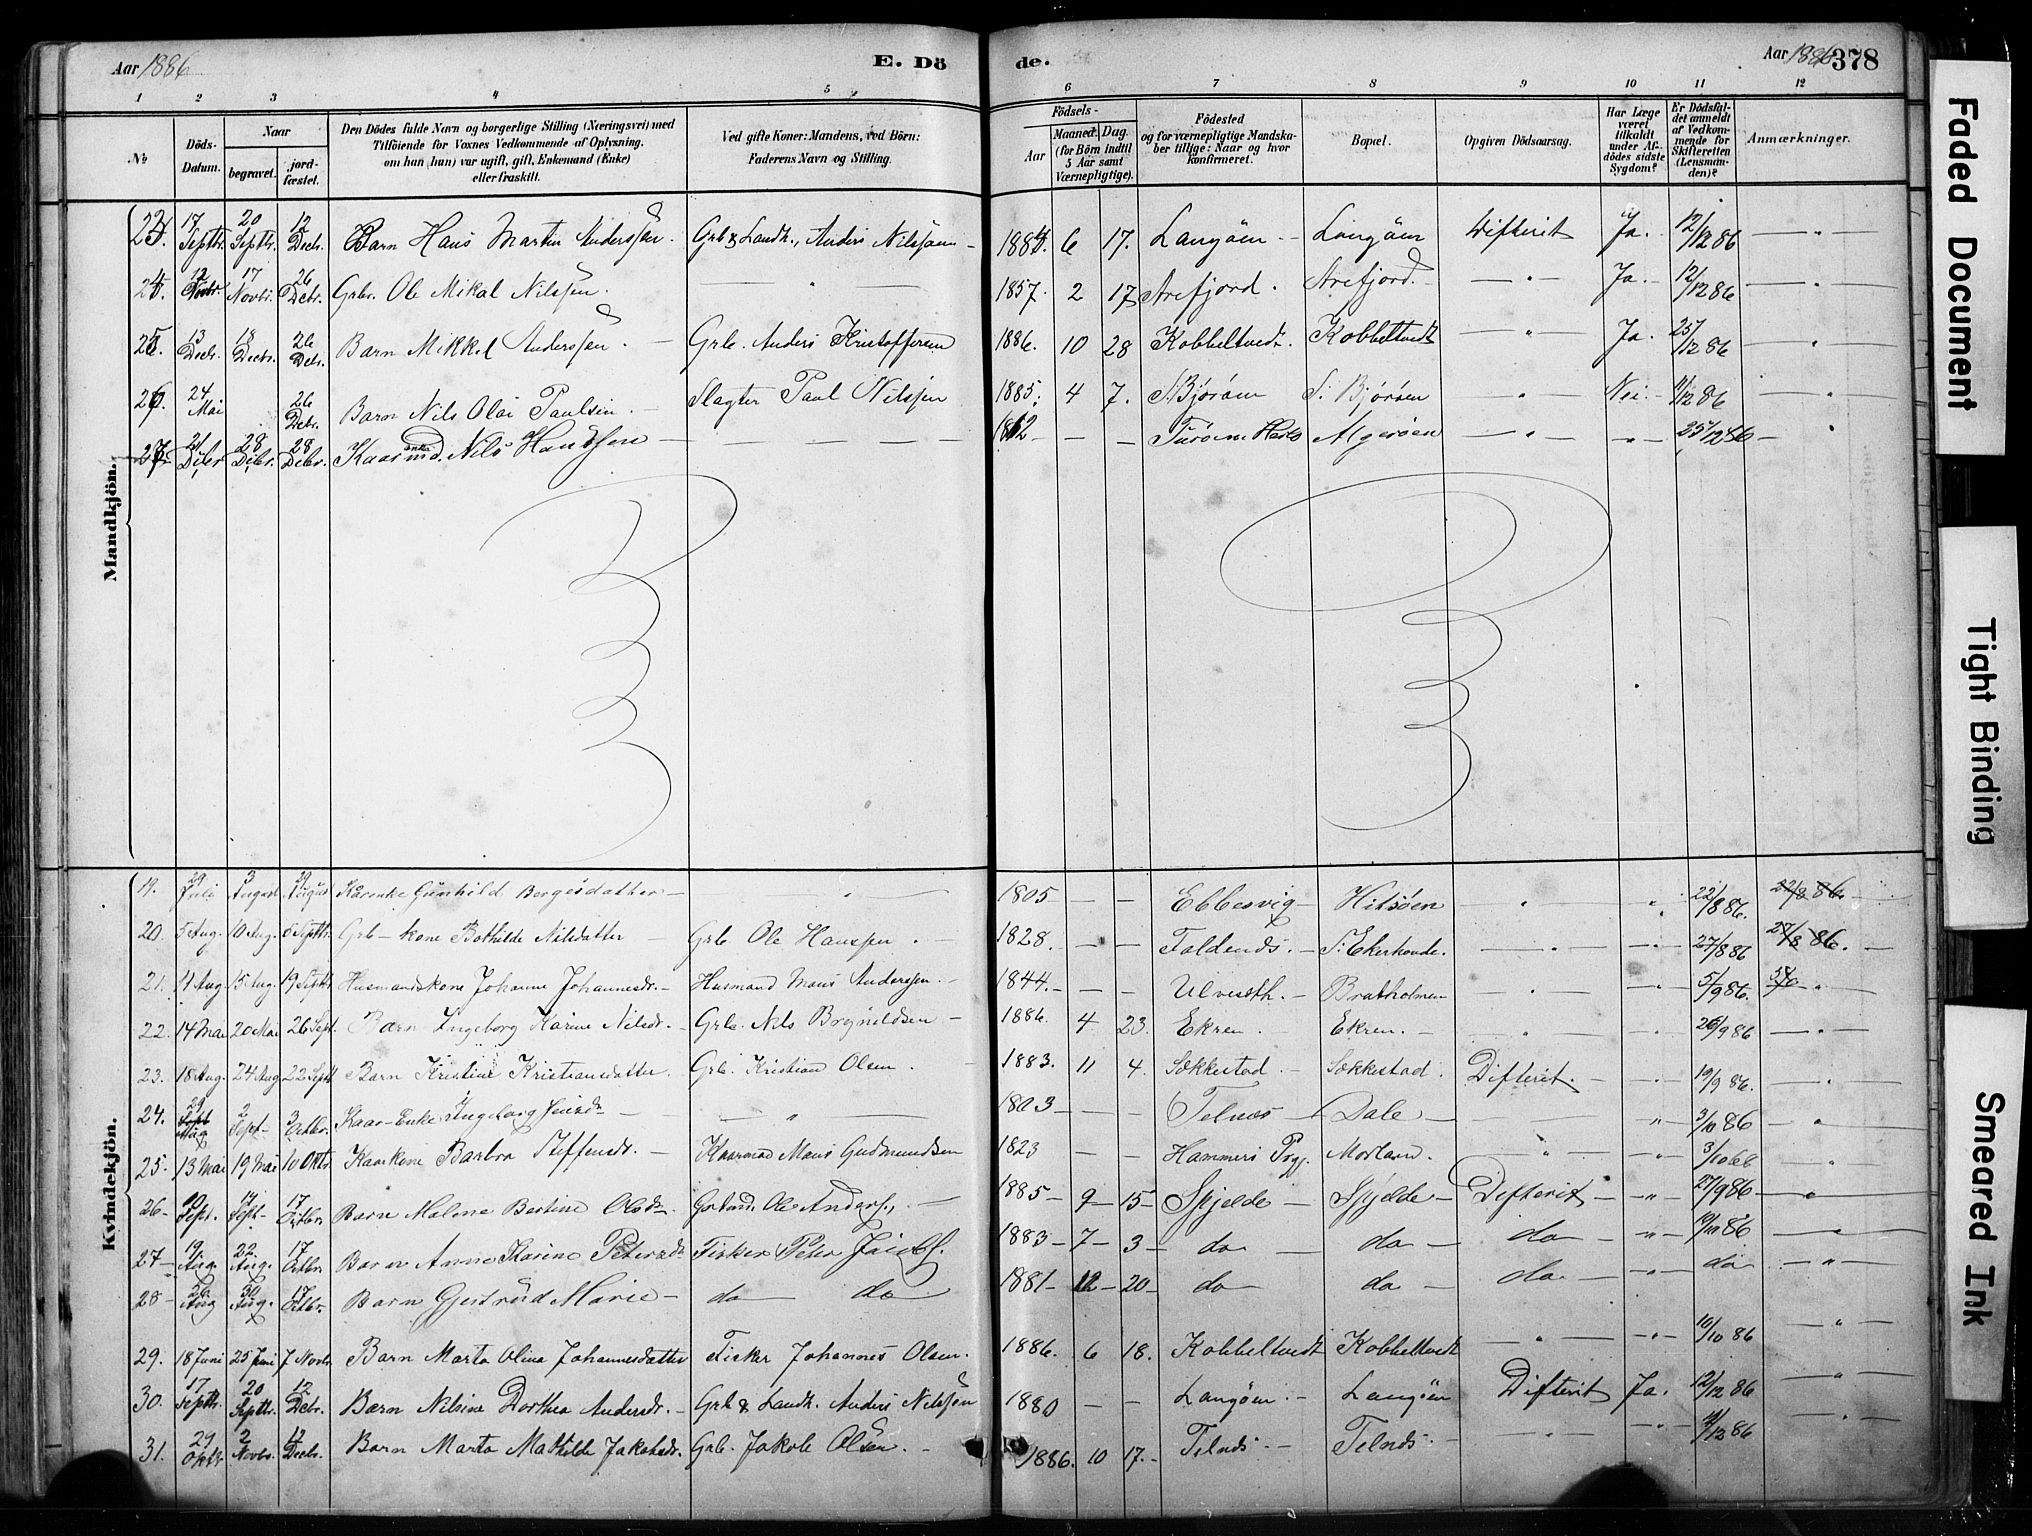 Aar 1886 E. Dö
de. Aar 1886 378
1 2 3 4 5 6 7 8 9 10 11 12
No
Döds-Datum.
Naar
begravet.
jord-fæstet.
Den Dödes fulde Navn og borgerlige Stilling (Næringsvei) med
Tilföiende for Voxnes Vedkommende af Oplysning.
om han (hun) var ugift, gift, Enkemand (Enke)
eller fraskilt.
Ved gifte Koner: Mandens, ved Börn:
Faderens Navn og Stilling.
Födsels-
Aar
Maaned. Dag
(for Börn indtil
5 Aar samt
Værnepligtige).
Födested
og for værnepligtige Mandska-
ber tillige: Naar og hvor
konfirmeret.
Bopæl.
Opgiven Dödsaarsag.
Har Læge
været
tilkaldt
under Af-
dödes sidste
Sygdom?
Er Dödsfal-
det anmeldt
af Vedkom-
mende for
Skifteretten
(Lensman-
den)?
Anmærkninger.
Mandkjön.
23. 17 Septbr. 20 Septbr. 12 Decbr. Barn Hans Martin Anderssen. Grb & Landh., Anders Nilssen 1884. 6 17. Langöen Langöen Difterit Ja. 12/12 86 "
24. 12 Novbr. 17 Novbr. 26 Debr. Grbr. Ole Mikal Nilssen. " 1857. 2 17 Arefjord. Arefjord. " Ja. 12/12 86 "
25. 13 Decbr. 18 Decbr. 26 Debr. Barn Mikkel Anderssen. Grb. Anders Kristoffersen 1886. 10 28 Kobbeltvedt. Kobbeltvedt " Ja. 25/12 86 "
26. 24 Mai 26 Debr. Barn Nils Olai Paulsen. Slagter Paul Nilssen 1885. 4 7. S. Bjøröen S. Bjøröen " Nei. 11/12 86 "
27 21 Debr 28 Debr. 28 Debr. Kaarenkemd. Nils Hanssen 1812 Algeröen " " 25/12 86 "
Kvindekjön.
19. 29 Juli 3 August 29 August Kårenke Gunhild Bergesdatter " 1805 Ebbesvig Hitsöen " " 22/8 86. 22/8 86.
20. 5 Aug. 10 Aug. 5 Septbr. Grb-kone Bothilde Nilsdatter Grb. Ole Hanssen. 1828. Foldnæs. S. Ekerhovde. " " 27/8 86 27/8 86.
21. 11 Aug. 15 Aug. 19 Septbr Husmandskone Johanne Johannesdr. Husmand Mons Anderssen. 1844. Ulveseth. Bratholmen " " 5/9 86. "
22. 14 Mai 20 Mai 26 Sept. Barn Ingeborg Karine Nilsdr. Grb. Nils Brynildsen 1886. 4 23. Ekren. Ekren. " " 26/9 86 "
23. 18 Aug. 24 Aug 22 Septbr Barn Kristine Kristiansdatter. Grb. Kristian Olsen. 1883. 11 4. Sækkestad. Sækkestad. Difterit. " 19/9 86. "
24. 29 Aug 2 Sept 3 Octbr. Kaar-Enke Ingeborg Jensdr " 1803 Telnæs Dale " 3/10 86 "
25. 13 Mai 19 Mai 10 Oktr. Kaarkone Barbro Steffensdr. Kaarmand Mons Gudmundsen 1823 Hammers Prgj. Morland. " " 3/10 86 "
26 10 Sept. 14 Sept 17 Octbr. Barn Malene Bertine Olsdr. Ole Anderss. 1885 9 15 Spjelde Spjelde Difterit " 27/9 86 "
27 19 Aug. 22 Aug. 17 Octbr. Barn Anne Karine Petersdr Fisker Peter Jacobs. 1883 7 3 do do do " 9/10 86 "
28 26 Aug 30 Aug. 17 Octbr. Barn Gjertrud Marie do do 1881 12 20 do do do " do "
29. 18 Juni 25 Juni 7 Novbr. Barn Marta Olina Johannesdatter Fisker Johannes Olsen. 1886. 6 18. Kobbeltvedt Kobbeltvedt " " 10/10 86 "
30. 17 Septbr. 20 Septbr. 12 Debr. Barn Nilsine Dorthea Andersdr. Grb & Landh. Anders Nilssen 1880 Langöen. Langöen Difterit Ja. 12/12 86 "
31. 29 Oktr 2 Novbr. 12 Decbr. Barn Marta Mathilde Jakobsdr. Grb. Jakob Olsen. 1886. 10 17. Telnæs. Telnæs. " " 11/12 86 "
Faded Document
Tight Binding
Smeared Ink